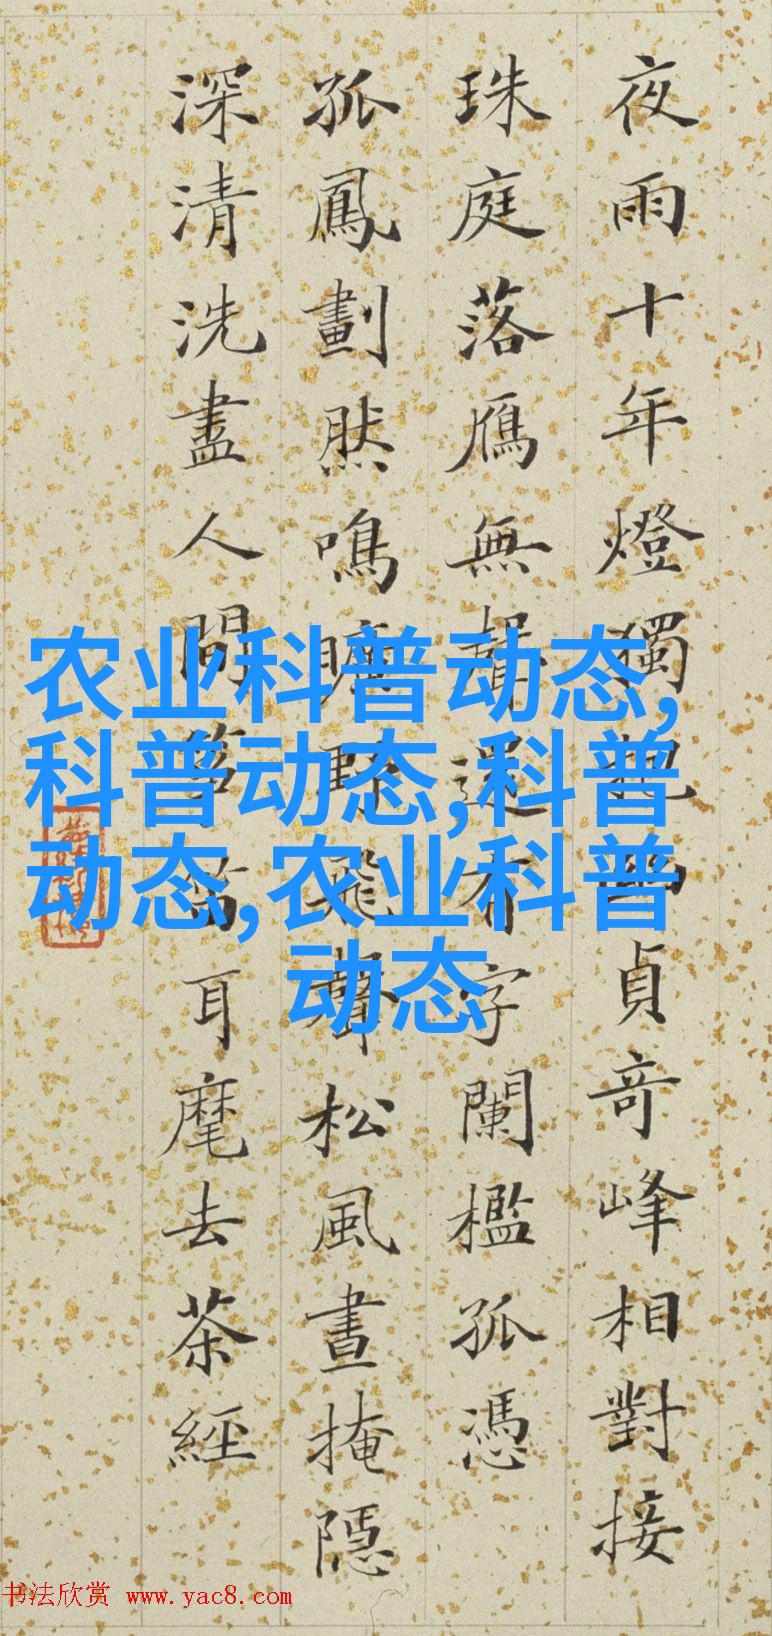 夜雨十年燈獨抱
貞奇峰相對接
珠庭落鴈無聲還
字闌檻孤憑
孤鳳劃然鳴曠野飛聲松風晝掩隱
深清洗盡人間
耳麾去茶經
农业科普动态,
科普动态,科普
动态,农业科普
动态
书法欣赏 www.yac8.com